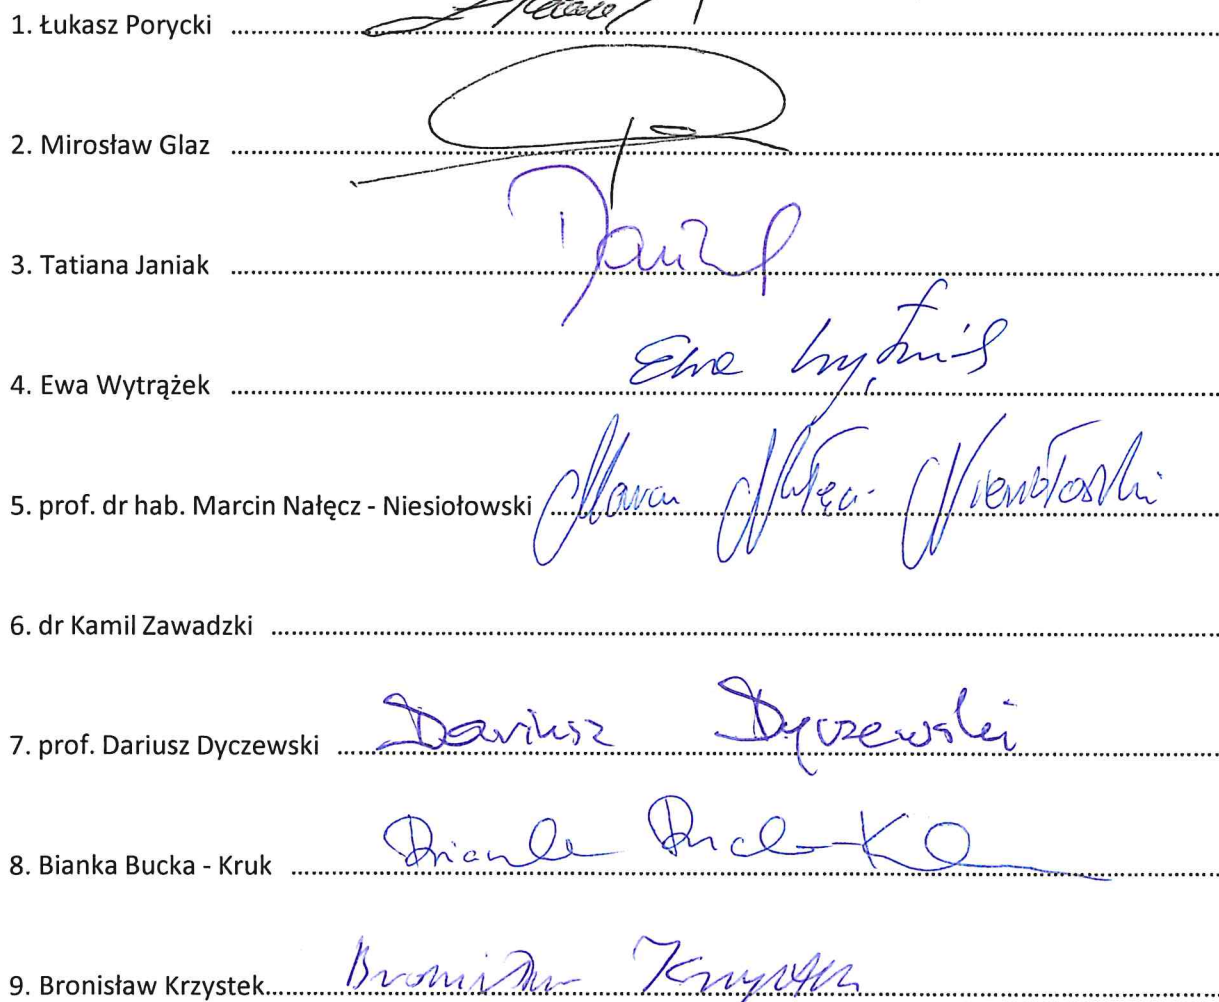 1. Łukasz Porycki
2. Mirosław Glaz
3. Tatiana Janiak
4. Ewa Wytrążek Ewa
5. prof. dr hab. Marcin Nałęcz - Niesiołowski Marcin Nałęcz - Niesiołowski
6. dr Kamil Zawadzki
7. prof. Dariusz Dyczewski Dariusz Dyczewski
8. Bianka Bucka - Kruk
9. Bronisław Krzystek Bronisław Krzystek